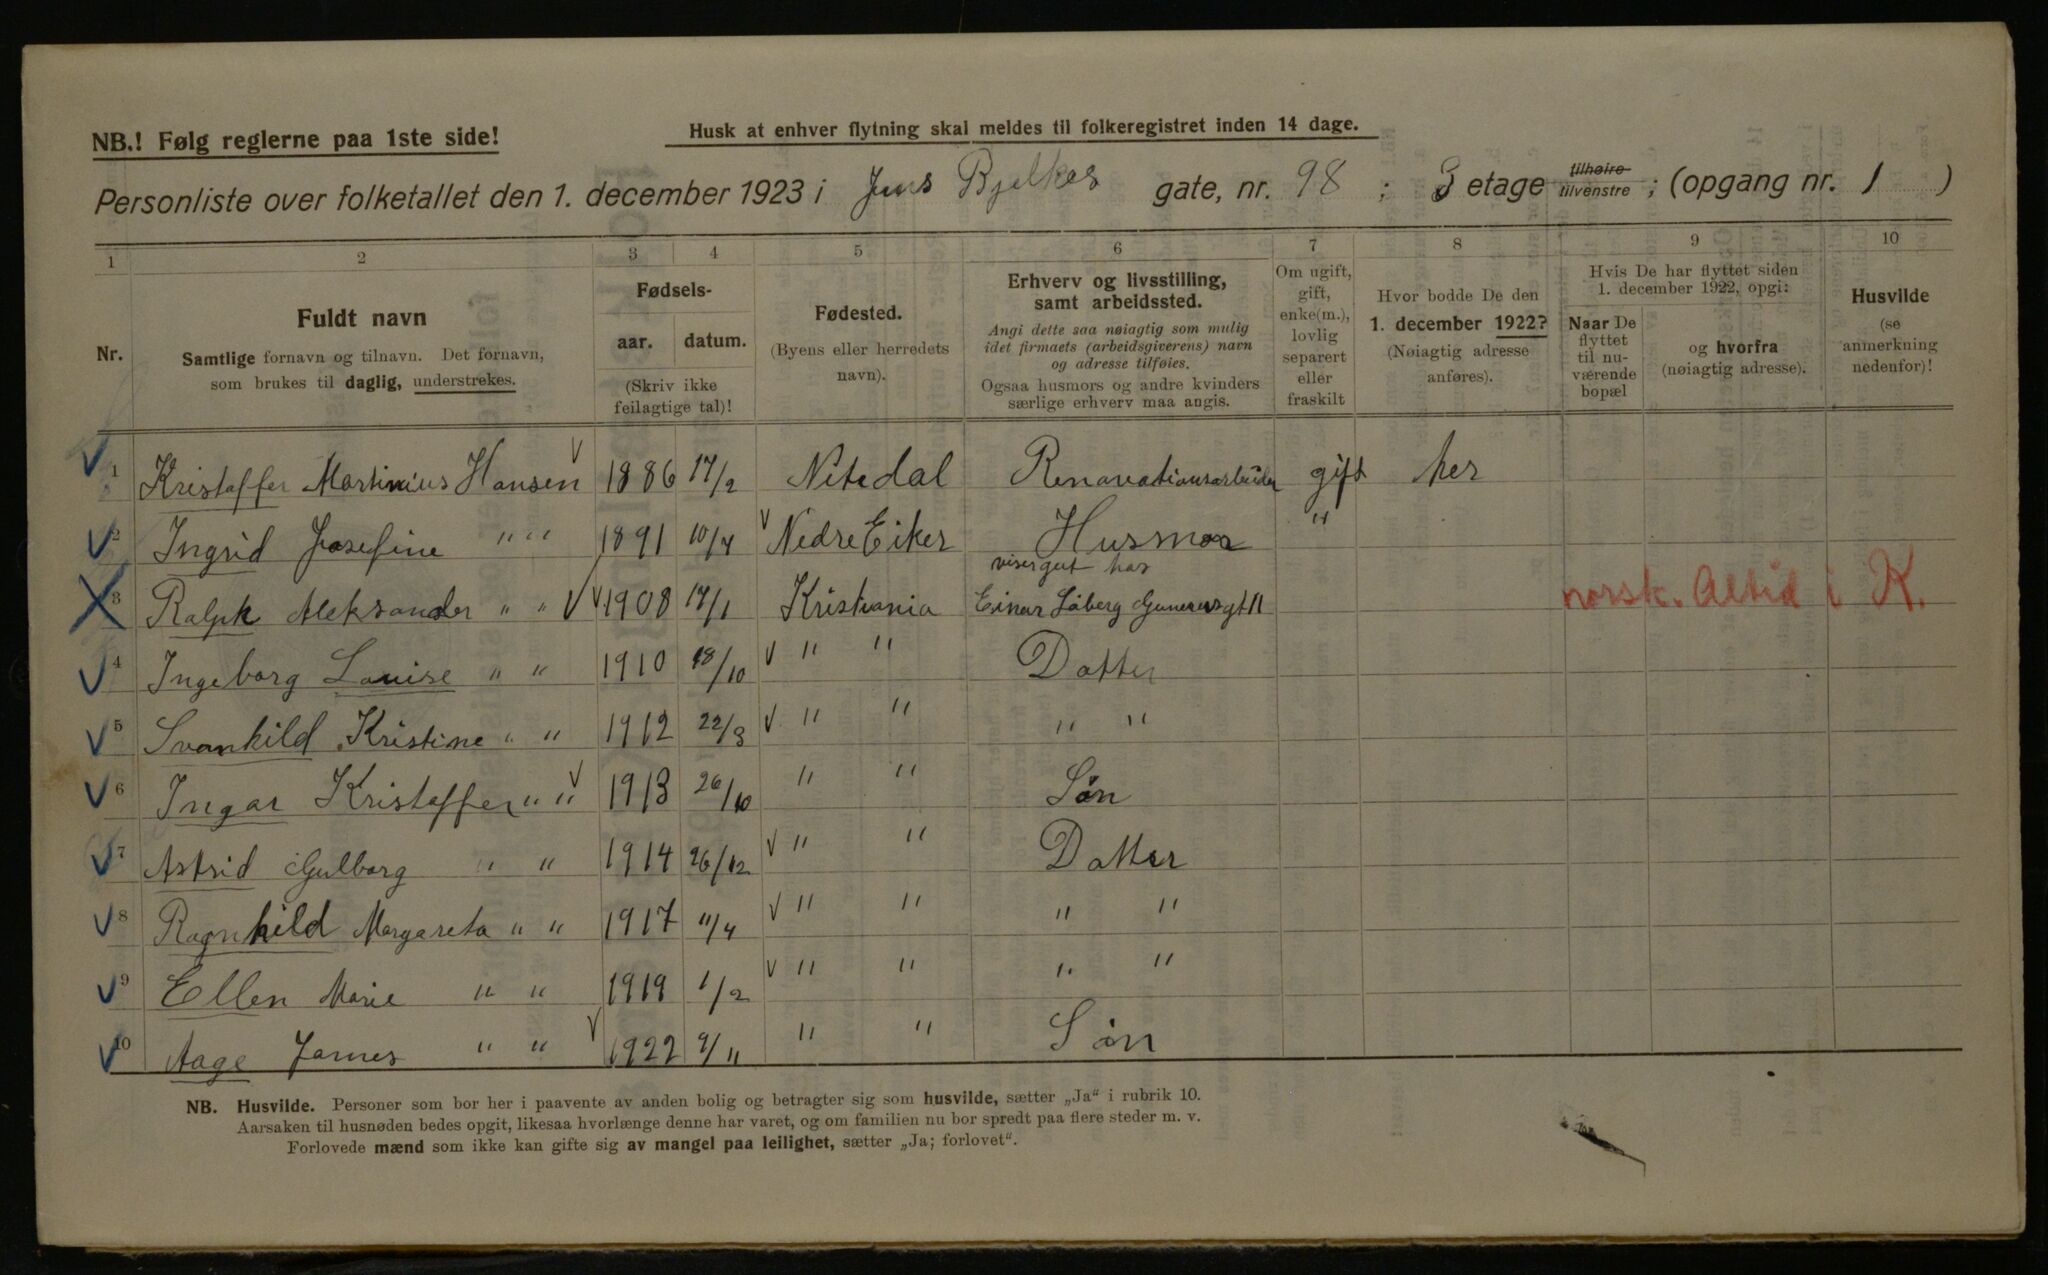 NB.! Følg reglerne paa 1ste side!
Husk at enhver flytning skal meldes til folkeregistret inden 14 dage.
Personliste over folketallet den 1. december 1923 i Jens Bjelkes gate, nr. 98 ; 3 etage tilhøire tilvenstre ; (opgang nr. 1 )
1 2 3 4 5 6 7 8 9 10
Nr.
Fuldt navn
Samtlige fornavn og tilnavn. Det fornavn,
som brukes til daglig, understrekes.
Fødsels-
aar. datum.
(Skriv ikke
feilagtige tal)!
Fødested.
(Byens eller herredets
navn).
Erhverv og livsstilling,
samt arbeidssted.
Angi dette saa nøiagtig som mulig
idet firmaets (arbeidsgiverens) navn
og adresse tilføies.
Ogsaa husmors og andre kvinders
særlige erhverv maa angis.
Om ugift,
gift,
enke(m.),
lovlig
separert
eller
fraskilt
Hvor bodde De den
1. december 1922?
(Nøiagtig adresse
anføres).
Hvis De har flyttet siden
1. december 1922, opgi:
Naar De
flyttet
til nu-
værende
bopæl
og hvorfra
(nøiagtig adresse).
Husvilde
(se
anmerkning
nedenfor)!
1 Kristoffer Martinius Hansen 1886 17/2 Nitedal Renovationsarbeider gift her
2 Ingrid Josefine " " 1891 10/4 Nedre Eiker Husmor "
visergut hos
3 Ralph Aleksander " " 1908 17/1 Kristiania Einar Søberg gt 11 norsk. Altid i K.
4 Ingeborg Louise " " 1910 18/10 " " Datter
5 Svanhild Kristine " " 1912 22/3 " " " "
6 Ingar Kristoffer " " 1913 26/10 " " Søn
7 Astrid Gulborg " " 1914 26/12 " " Datter
8 Ragnhild Margareta " " 1917 11/4 " " " "
9 Ellen Marie " " 1919 1/2 " " " "
10 Aage James " " 1922 9/11 " " Søn
NB. Husvilde. Personer som bor her i paavente av anden bolig og betragter sig som husvilde, sætter „Ja“ i rubrik 10.
Aarsaken til husnøden bedes opgit, likesaa hvorlænge denne har varet, og om familien nu bor spredt paa flere steder m. v.
Forlovede mænd som ikke kan gifte sig av mangel paa leilighet, sætter „Ja; forlovet“.